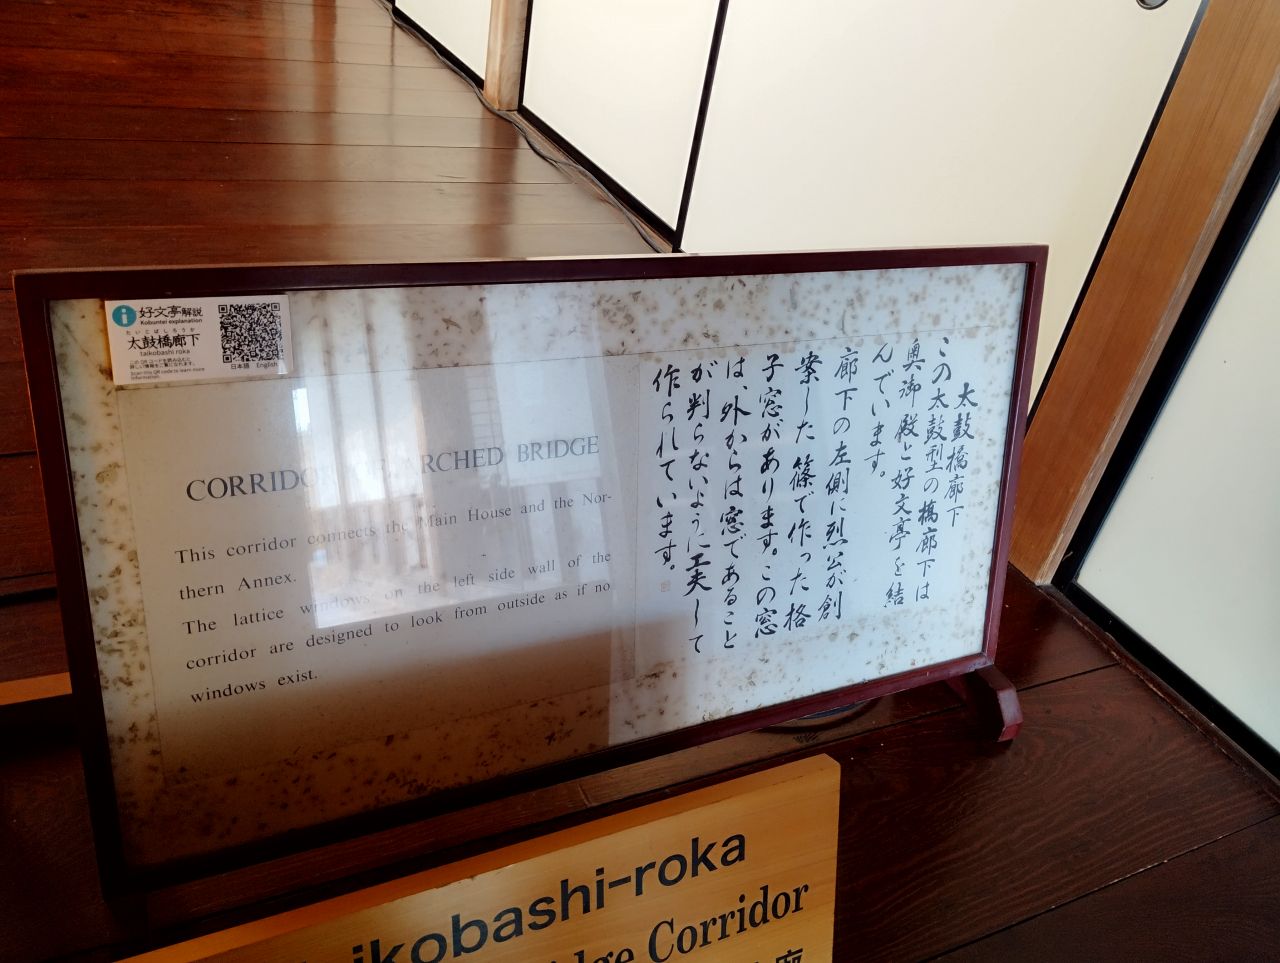 好文亭解説
Kobuntei explanation
たいこばしろうか
太鼓橋廊下
taikobashi roka
このQRコードを読み込むと
詳しい情報をご覧になれます。
Scan this QR code to learn more
information.
日本語 English
CORRIDOR OF ARCHED BRIDGE
This corridor connects the Main House and the Nor-
thern Annex.
The lattice windows on the left side wall of the
corridor are designed to look from outside as if no
windows exist.
太鼓橋廊下
この太鼓型の橋廊下は
奥御殿と好文亭を結
んでいます。
廊下の左側に烈公が創
案した篠で作った格
子窓があります。この窓
は、外からは窓であること
が判らないように工夫して
作られています。
ikobashi-roka
dge Corridor